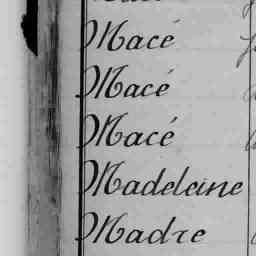 Macé
Macé
Macé
Madeleine
Madre